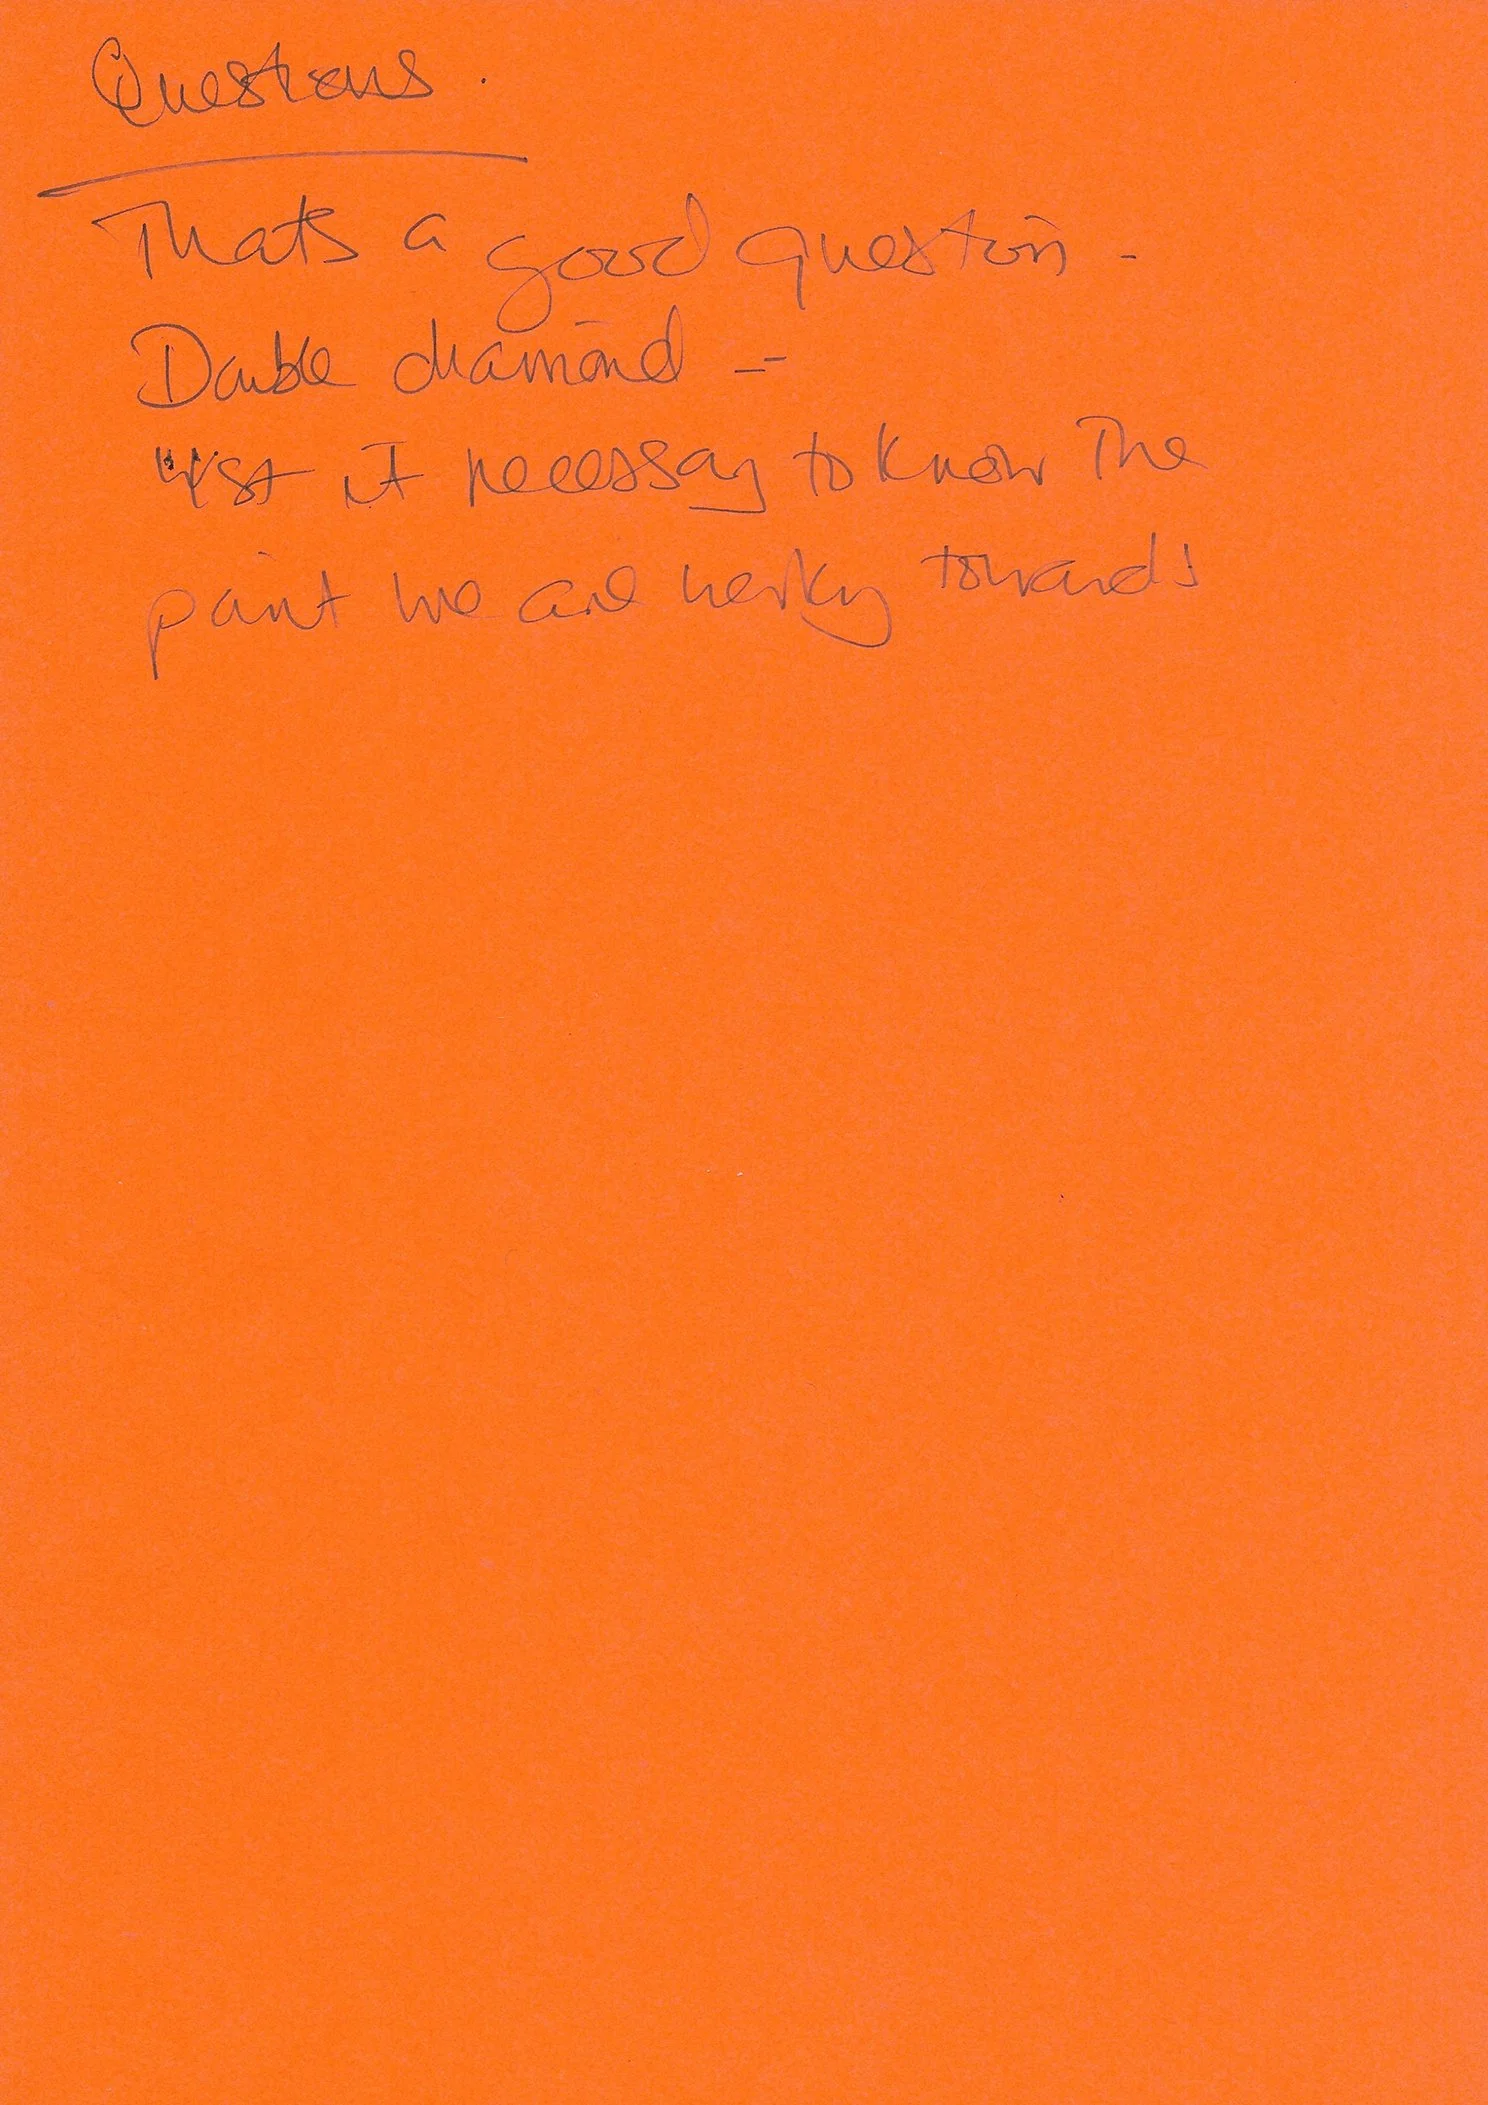 Questions.
Thats a good question -
Double diamond --
it necessary to know the
point we are working towards